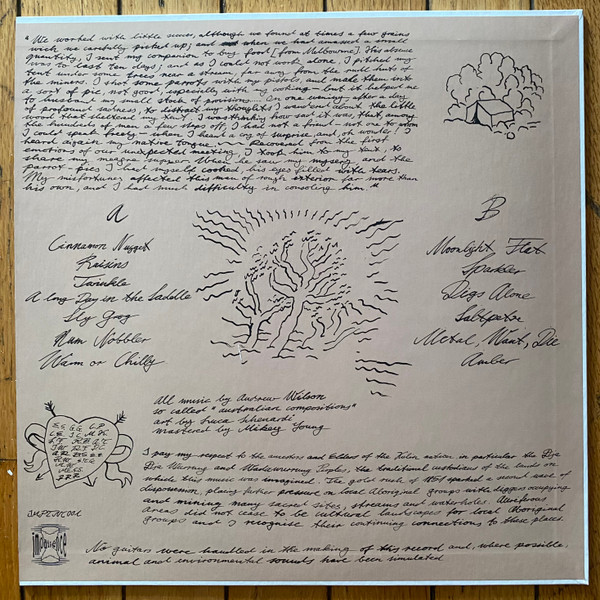 "We worked with little success, although we found at times a few grains
which we carefully picked up; and when we had amassed a small
quantity, I sent my companion to buy food [from Melbourne]. His absence
was to last ten days; and as I could not work alone, I pitched my
tent under some trees near a stream far away from the rude huts of
the miners. I shot some parrots with my pistol, and made them into
a sort of pie, not good, especially with my cooking - but it helped me
to husband my small stock of provisions. One evening, after a day
of profound sadness, to distract my thoughts I wandered about the little
wood that sheltered my tent. I was thinking how sad it was, that among
the hundreds of men a few steps off, I had not a friend - not one to whom
I could speak freely - when I heard a cry of surprise, and, oh wonder! I
heard again my native tongue. Recovered from the first
emotions of our unexpected meeting, I took him to my tent, to
share my meagre supper. When he saw my misery, and the
parrot-pies I had myself cooked, his eyes filled with tears.
My misfortune affected this man of rough exterior far more than
his own, and I had much difficulty in consoling him."
A
Cinnamon Nugget
Raisins
Twinkle
A long Day in the Saddle
Sly Grog
Rum Nobbler
Warm or Chilly
B
Moonlight Flat
Sparkler
Digs Alone
Saltpeter
Metal, Want, Die
Amber
All music by Andrew Wilson
so called "australian compositions"
art by Luca Schenardi
mastered by Mikey Young
I pay my respect to the ancestors and Elders of the Kulin nation, in particular the Dja
Dja Wurrung and Wadawurrung Peoples, the traditional custodians of the lands on
which this music was imagined. The gold rush of 1851 sparked a second wave of
dispossession, placing further pressure on local Aboriginal groups with diggers occupying
and mining many sacred sites, streams and waterholes. Auriferous
areas did not cease to be cultural landscapes for local Aboriginal
groups and I recognise their continuing connections to these places.
impatience
No guitars were handled in the making of this record and, where possible,
animal and environmental sounds have been simulated